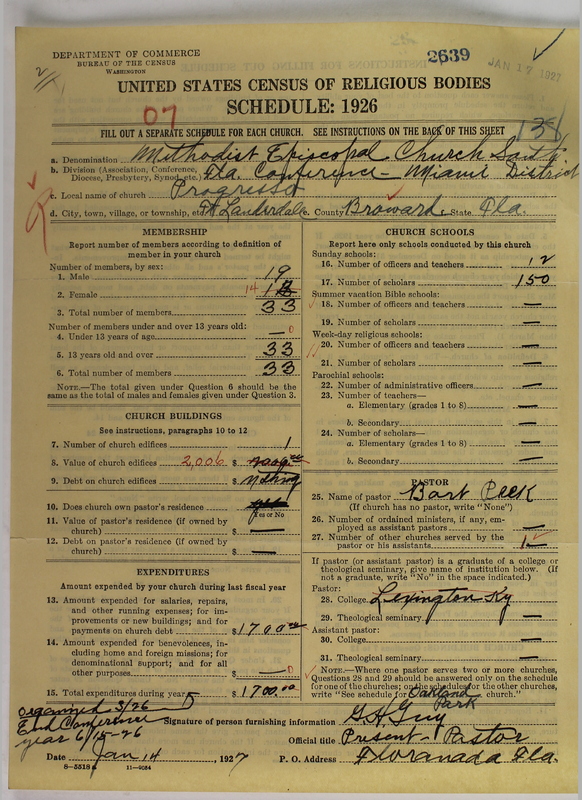 DEPARTMENT OF COMMERCE
BUREAU OF THE CENSUS
WASHINGTON
2639
JAN 17 1927
UNITED STATES CENSUS OF RELIGIOUS BODIES
SCHEDULE: 1926
07
FILL OUT A SEPARATE SCHEDULE FOR EACH CHURCH. SEE INSTRUCTIONS ON THE BACK OF THIS SHEET
138
a. Denomination Methodist Episcopal Church South
b. Division (Association, Conference, Diocese, Presbytery, Synod, etc.) Fla. Conference - Miami District
c. Local name of church Progresso
d. City, town, village, or township, etc. Ft Lauderdale c. County Broward State Fla.
MEMBERSHIP
Report number of members according to definition of
member in your church
Number of members, by sex:
1. Male 19
2. Female 14
3. Total number of members 33
Number of members under and over 13 years old:
4. Under 13 years of age — 0
5. 13 years old and over 33
6. Total number of members 33
NOTE.—The total given under Question 6 should be
the same as the total of males and females given under Question 3.
CHURCH BUILDINGS
See instructions, paragraphs 10 to 12
7. Number of church edifices 1
8. Value of church edifices 2,006 $
9. Debt on church edifices $ Nothing
10. Does church own pastor's residence
Yes or No
11. Value of pastor's residence (if owned by
church) $ —
12. Debt on pastor's residence (if owned by
church) $ —
EXPENDITURES
Amount expended by your church during last fiscal year
13. Amount expended for salaries, repairs,
and other running expenses; for im-
provements or new buildings; and for
payments on church debt $1700.00
14. Amount expended for benevolences, in-
cluding home and foreign missions; for
denominational support; and for all
other purposes $ — 0
15. Total expenditures during year $1700.00
CHURCH SCHOOLS
Report here only schools conducted by this church
Sunday schools:
16. Number of officers and teachers 12
17. Number of scholars 150
Summer vacation Bible schools:
18. Number of officers and teachers —
19. Number of scholars —
Week-day religious schools:
20. Number of officers and teachers —
21. Number of scholars —
Parochial schools:
22. Number of administrative officers —
23. Number of teachers—
a. Elementary (grades 1 to 8) —
b. Secondary —
24. Number of scholars—
a. Elementary (grades 1 to 8) —
b. Secondary —
PASTOR
25. Name of pastor Bart Peek
(If church has no pastor, write "None")
26. Number of ordained ministers, if any, em-
ployed as assistant pastors —
27. Number of other churches served by the
pastor or his assistants 1
If pastor (or assistant pastor) is a graduate of a college or
theological seminary, give name of institution below. (If
not a graduate, write "No" in the space indicated.)
Pastor:
28. College Lexington Ky
29. Theological seminary —
Assistant pastor:
30. College —
31. Theological seminary —
NOTE.—Where one pastor serves two or more churches,
Questions 28 and 29 should be answered only on the schedule
for one of the churches; on the schedules for the other churches,
write "See schedule for Oakland Park church."
Organized 3/26
End Conference
year 6/15-26
Signature of person furnishing information G.A. Guy
Official title Present - Pastor
Date Jan 14, 1927
P. O. Address Floranada Fla.
8-5518a 11-9034